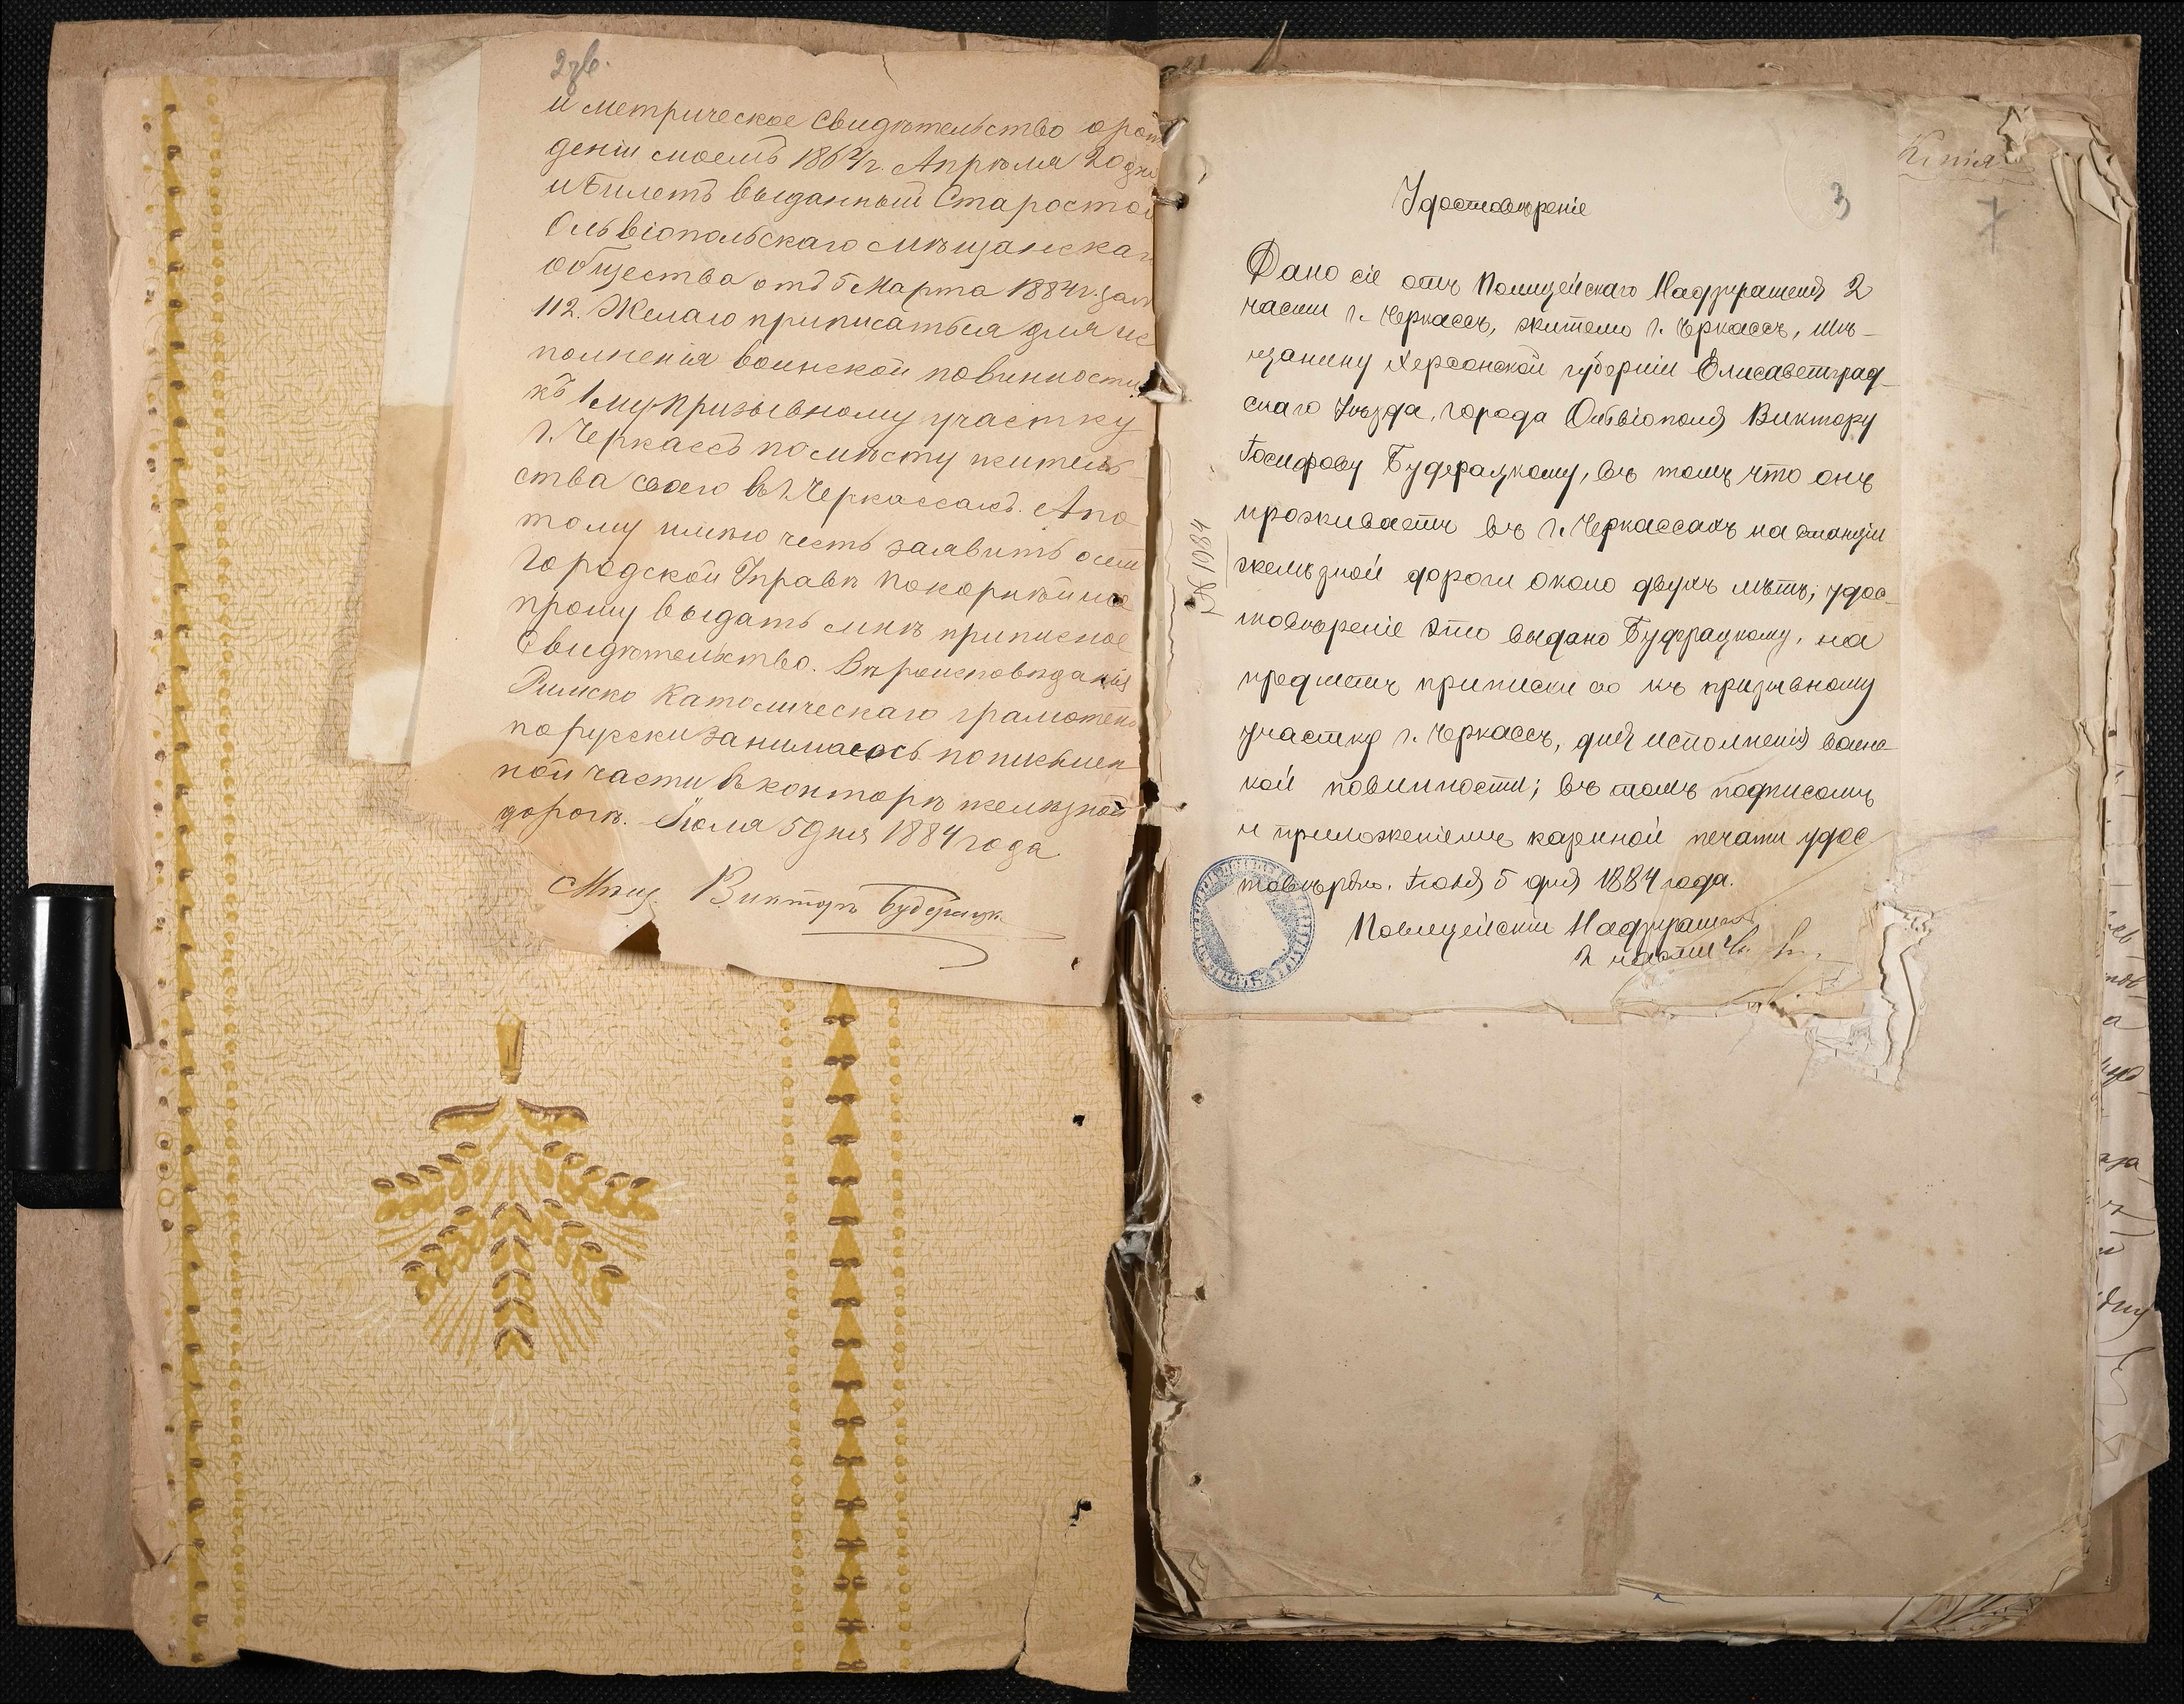 2зв.
и метрическое свидѣтельство о рож
деніи моемъ 1863/4г. Апрѣля 20 дня
и Билетъ выданный Старостой
Ольвіопольскаго мѣщанскаг
общества отъ 5 Марта 1884 г. за №
112. Желаю приписаться для ис
полненія воинской повинности
къ 1му призывному участку
г. Черкассъ по мѣсту житель
ства своего въ г. Черкассахъ. А по
тому имѣю честь заявить о семъ
Городской Управѣ покорнѣйше
прошу выдать мнѣ приписное
Свидѣтельство. Вѣроисповѣданія
Римско Католическаго грамотенъ
по русски занимаюсь по письмен
ной части въ конторѣ желѣзной
дороги. Іюля 5 дня 1884 года
Мѣщ. Викторъ Будерацк
Копія
3
7
Удостовѣреніе
Дано сіе отъ Полицейскаго Надзирателя 2
части г. Черкассъ, жителю г. Черкассъ, мѣ-
щанину Херсонской губерніи Елисаветград-
скаго Уѣзда, города Ольвіополя Виктору
Іосифову Будерацкому, въ томъ что онъ
проживаетъ въ г. Черкассахъ на станціи
желѣзной дороги около двухъ лѣтъ; удос-
товѣреніе это выдано Будерацкому, на
предметъ приписки его къ призывному
участку г. Черкассъ, для исполненія воинс
кой повинности; въ томъ подписомъ
и приложеніемъ казенной печати удос
товѣряю. Іюля 5 дня 1884 года.
Полицейскій Надзиратель
2 части
№ 1084